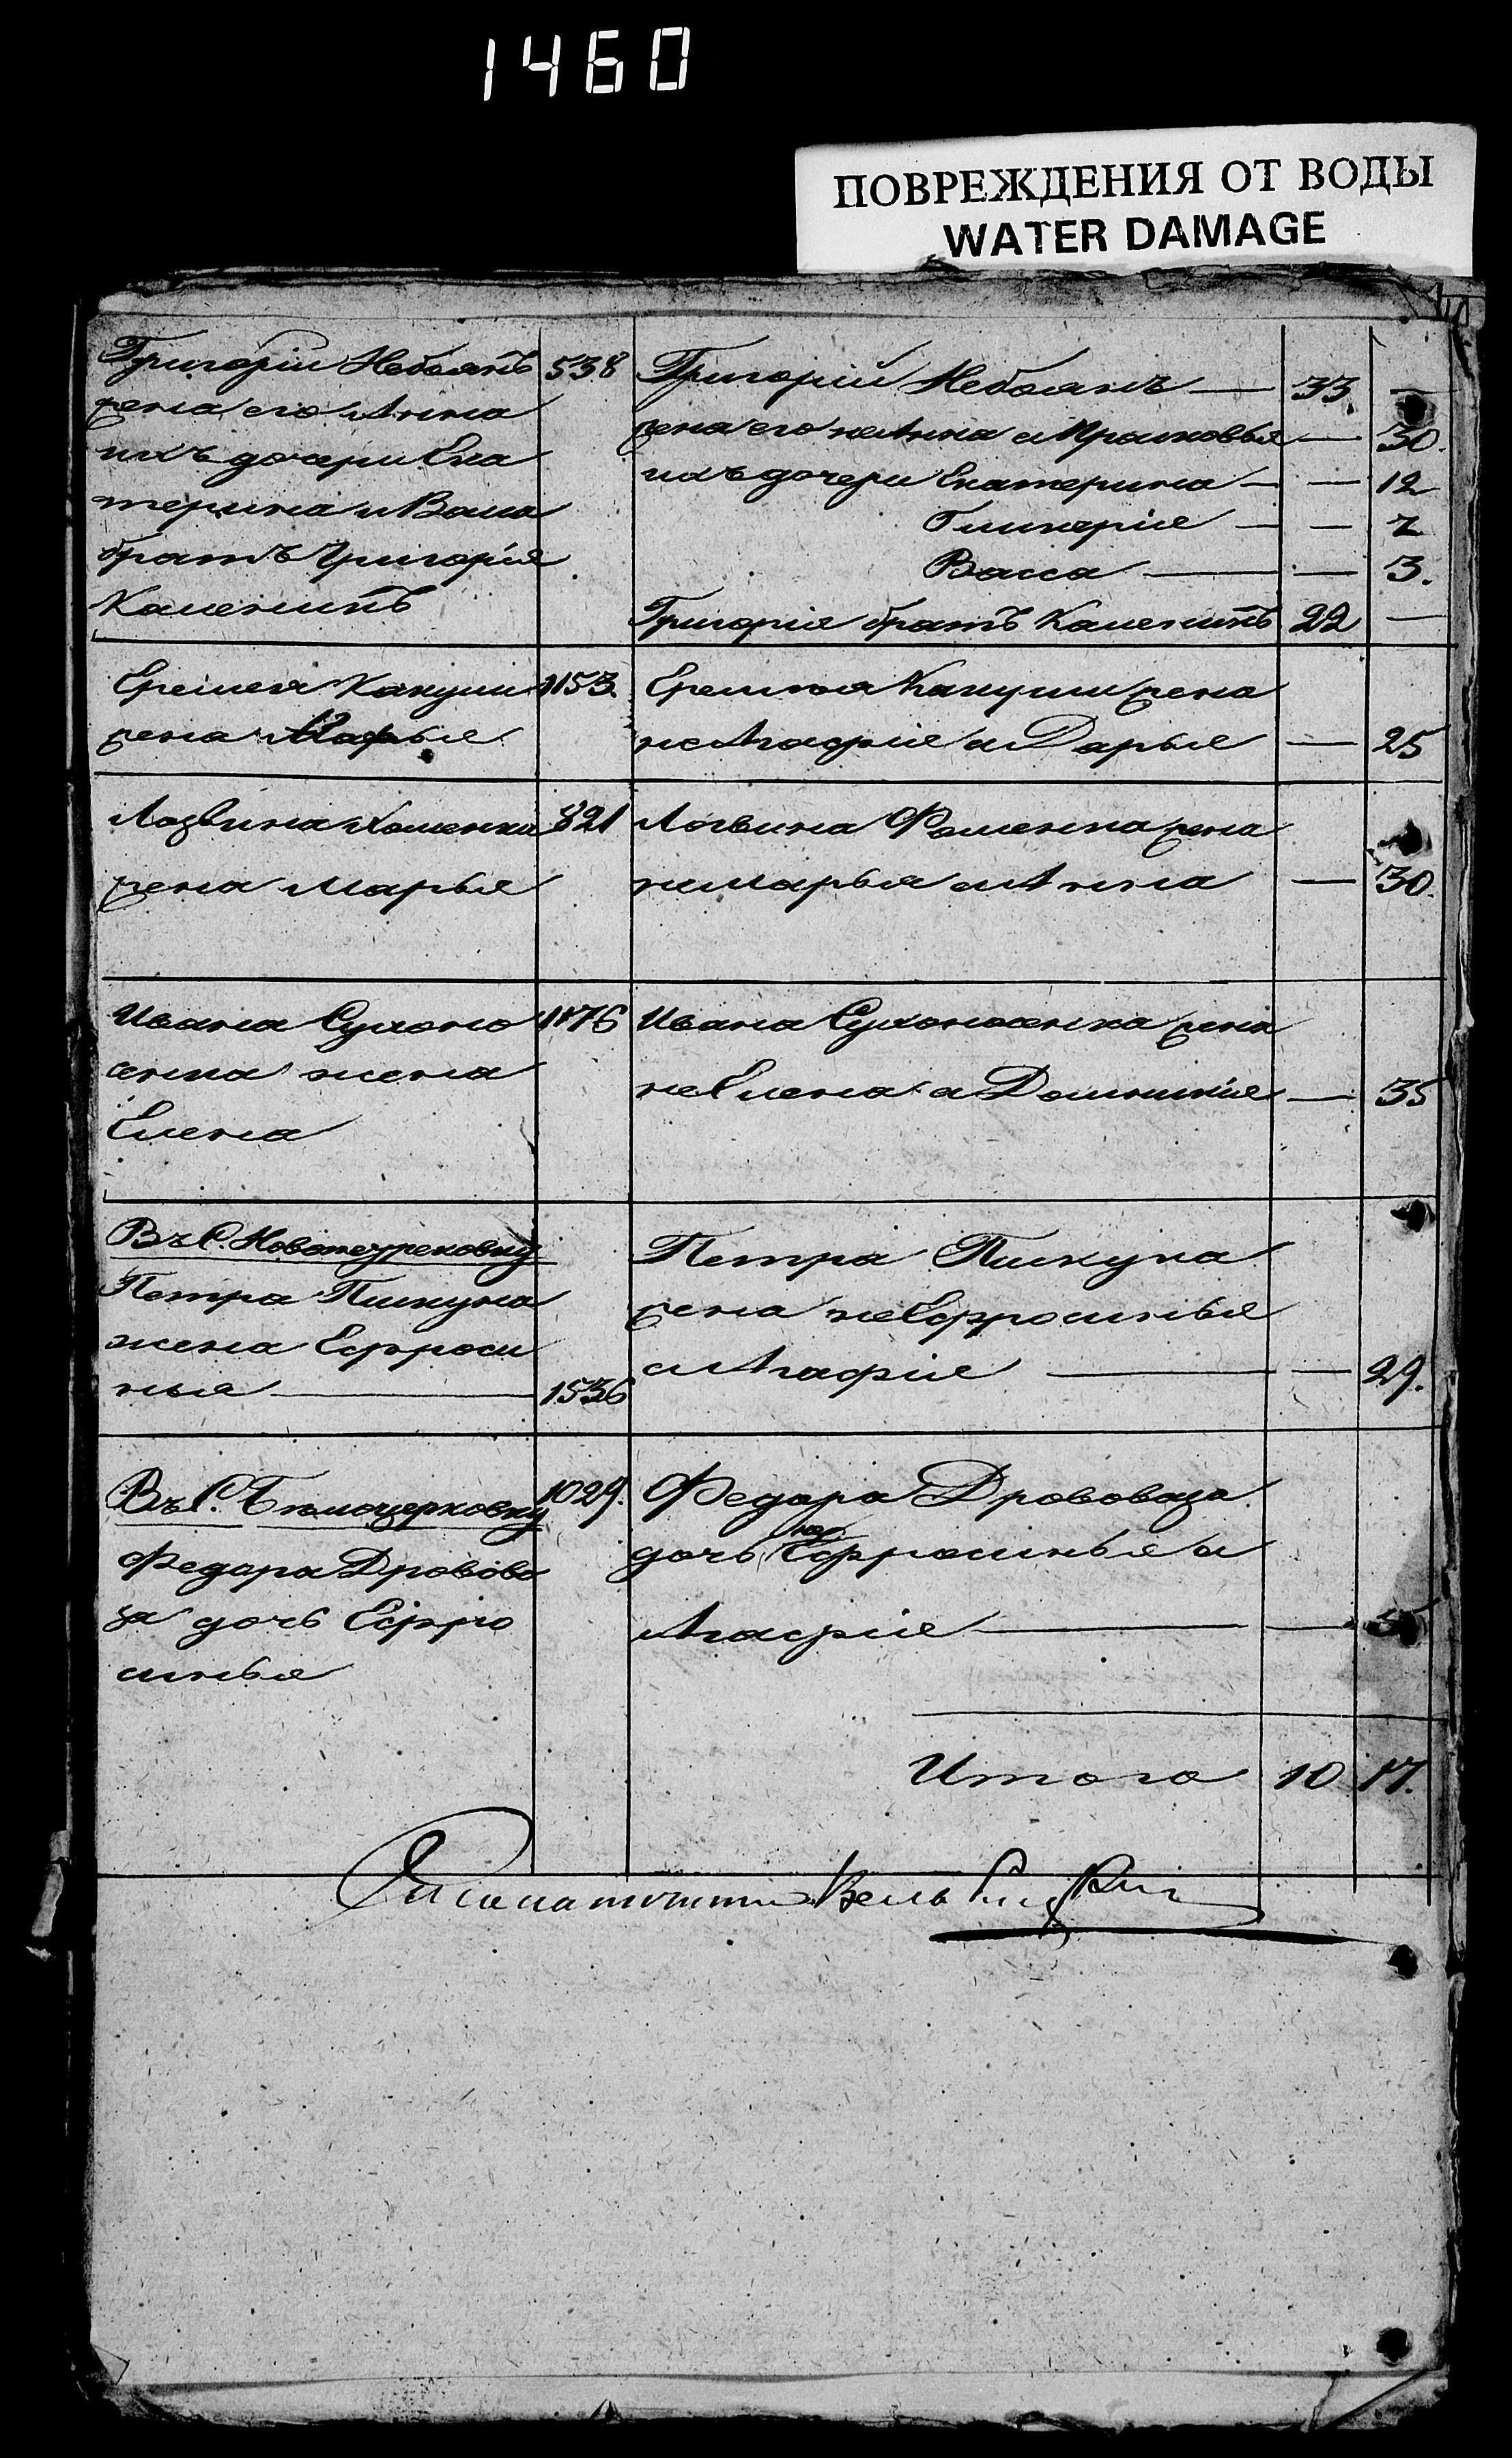 1460
ПОВРЕЖДЕНИЯ ОТ ВОДЫ
WATER DAMAGE
Григорій Небоянъ 538
жена его Анна
ихъ дочери Ека
терина и Васса
братъ Григорія
Калениѣъ
Григорій Небоянъ — 33 —
жена его не Анна а Прасковья — 30.
ихъ дочери Екатерина — — 12
Гликерія — — 7
Васса — — 3.
Григорія братъ 22 —
Еремея 1153.
жена Марья
Еремея жена
не Агафія а Дарья — 25
Логвина Хоменка 821
жена Марья
Логвина Фоменка жена
не Марья а Анна — 30.
Ивана Сухоно 1176
сенка жена
Елена
Ивана Сухоносенка жена
не Елена а Домникія — 35
Въ С.
Петра Пикуна
жена Ефроси
нья — 1536
Петра Пикуна
жена не Ефросинья
а Агафія — — 29.
Въ С. Бѣлоцерковку 1029.
Федора Дровово
за дочь Ефро
синья
Федора Дрововоза
дочь не Ефросинья а
Агафія — — 5
Итого 10 17.